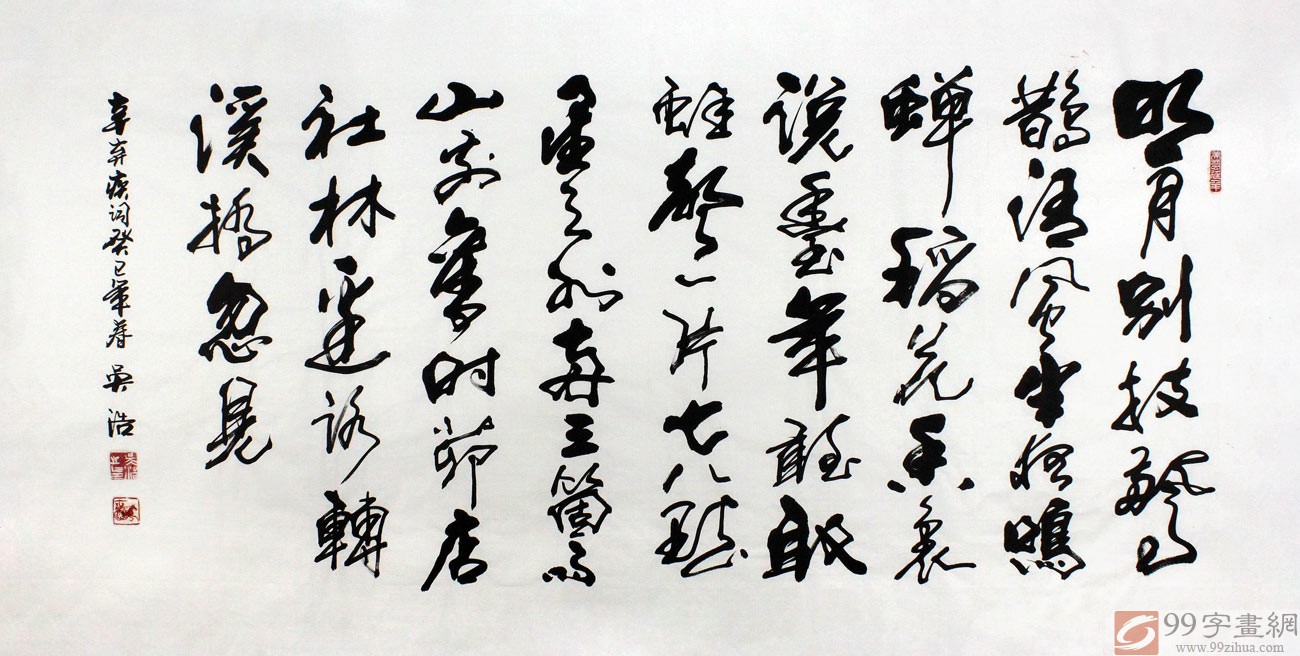 明月别枝驚
鵲清风半夜鳴
蟬稻花香裏
說豊年聽取
蛙聲一片七八點
星天外兩三箇雨
山前舊时茆店
社林邊路轉
溪橋忽見
辛弃疾词癸巳年春 吴浩
99字畫網
www.99zihua.com